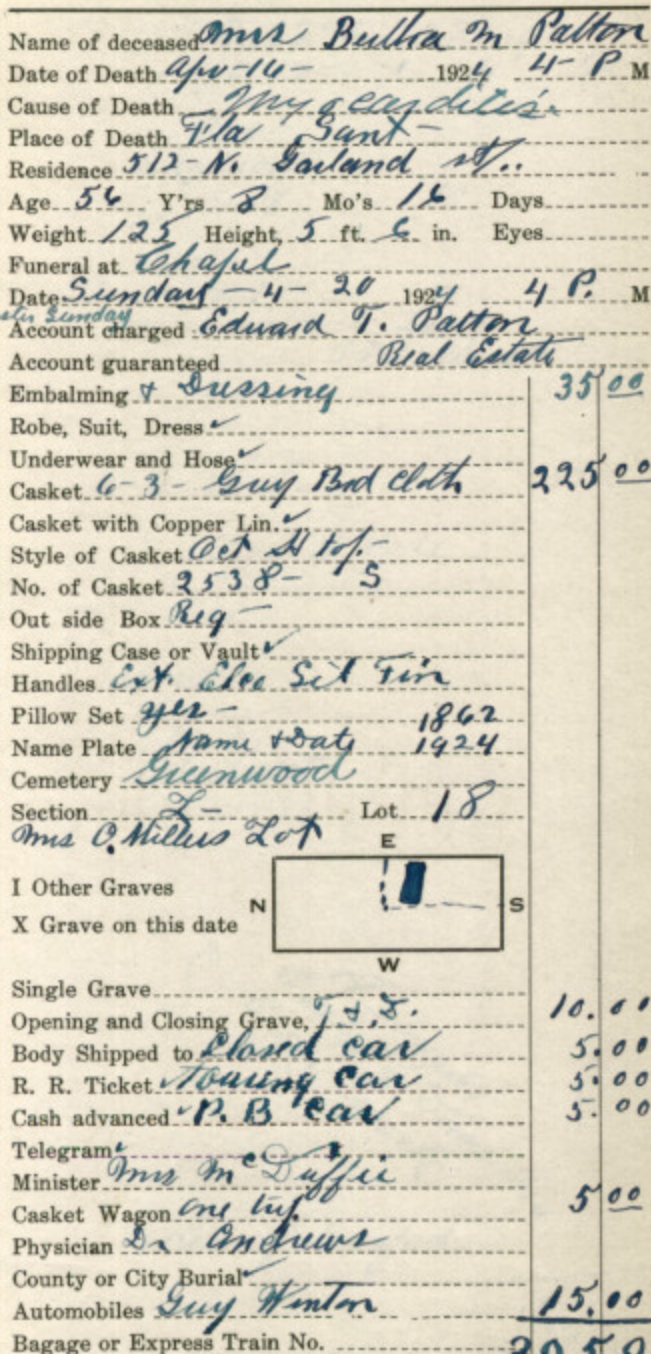 Name of deceased Mrs Bulba M Patton
Date of Death Apr-16- 1924 4- P M
Cause of Death Myocarditis
Place of Death Fla Sant-
Residence 512- N. Garland st..
Age 56 Y'rs 8 Mo's 16 Days
Weight 125 Height, 5 ft. 6 in. Eyes
Funeral at Chapel
Date Sunday -4- 20 1924 4 P. M
Sunday
Account charged Edward T. Patton
Account guaranteed Real Estate
Embalming & Dressing 35 00
Robe, Suit, Dress ✓
Underwear and Hose ✓
Casket 6-3- Grey Brd Cloth 225 00
Casket with Copper Lin. ✓
Style of Casket Oct top-
No. of Casket 2538- S
Out side Box Reg-
Shipping Case or Vault ✓
Handles Ext. Sil Fin
Pillow Set yes- 1862
Name Plate Name & Date 1924
Cemetery Greenwood
Section L- Lot 18
Mrs C. Millers Lot
E
I Other Graves
N S
X Grave on this date
W
Single Grave
Opening and Closing Grave, 10.00
Body Shipped to Closed Car 5.00
R. R. Ticket Touring Car 5.00
Cash advanced P. B Car 5.00
Telegram ✓
Minister Mrs McDuffie
Casket Wagon one trip 5 00
Physician Dr Andrews
County or City Burial ✓
Automobiles Guy Winton 15.00
Bagage or Express Train No.